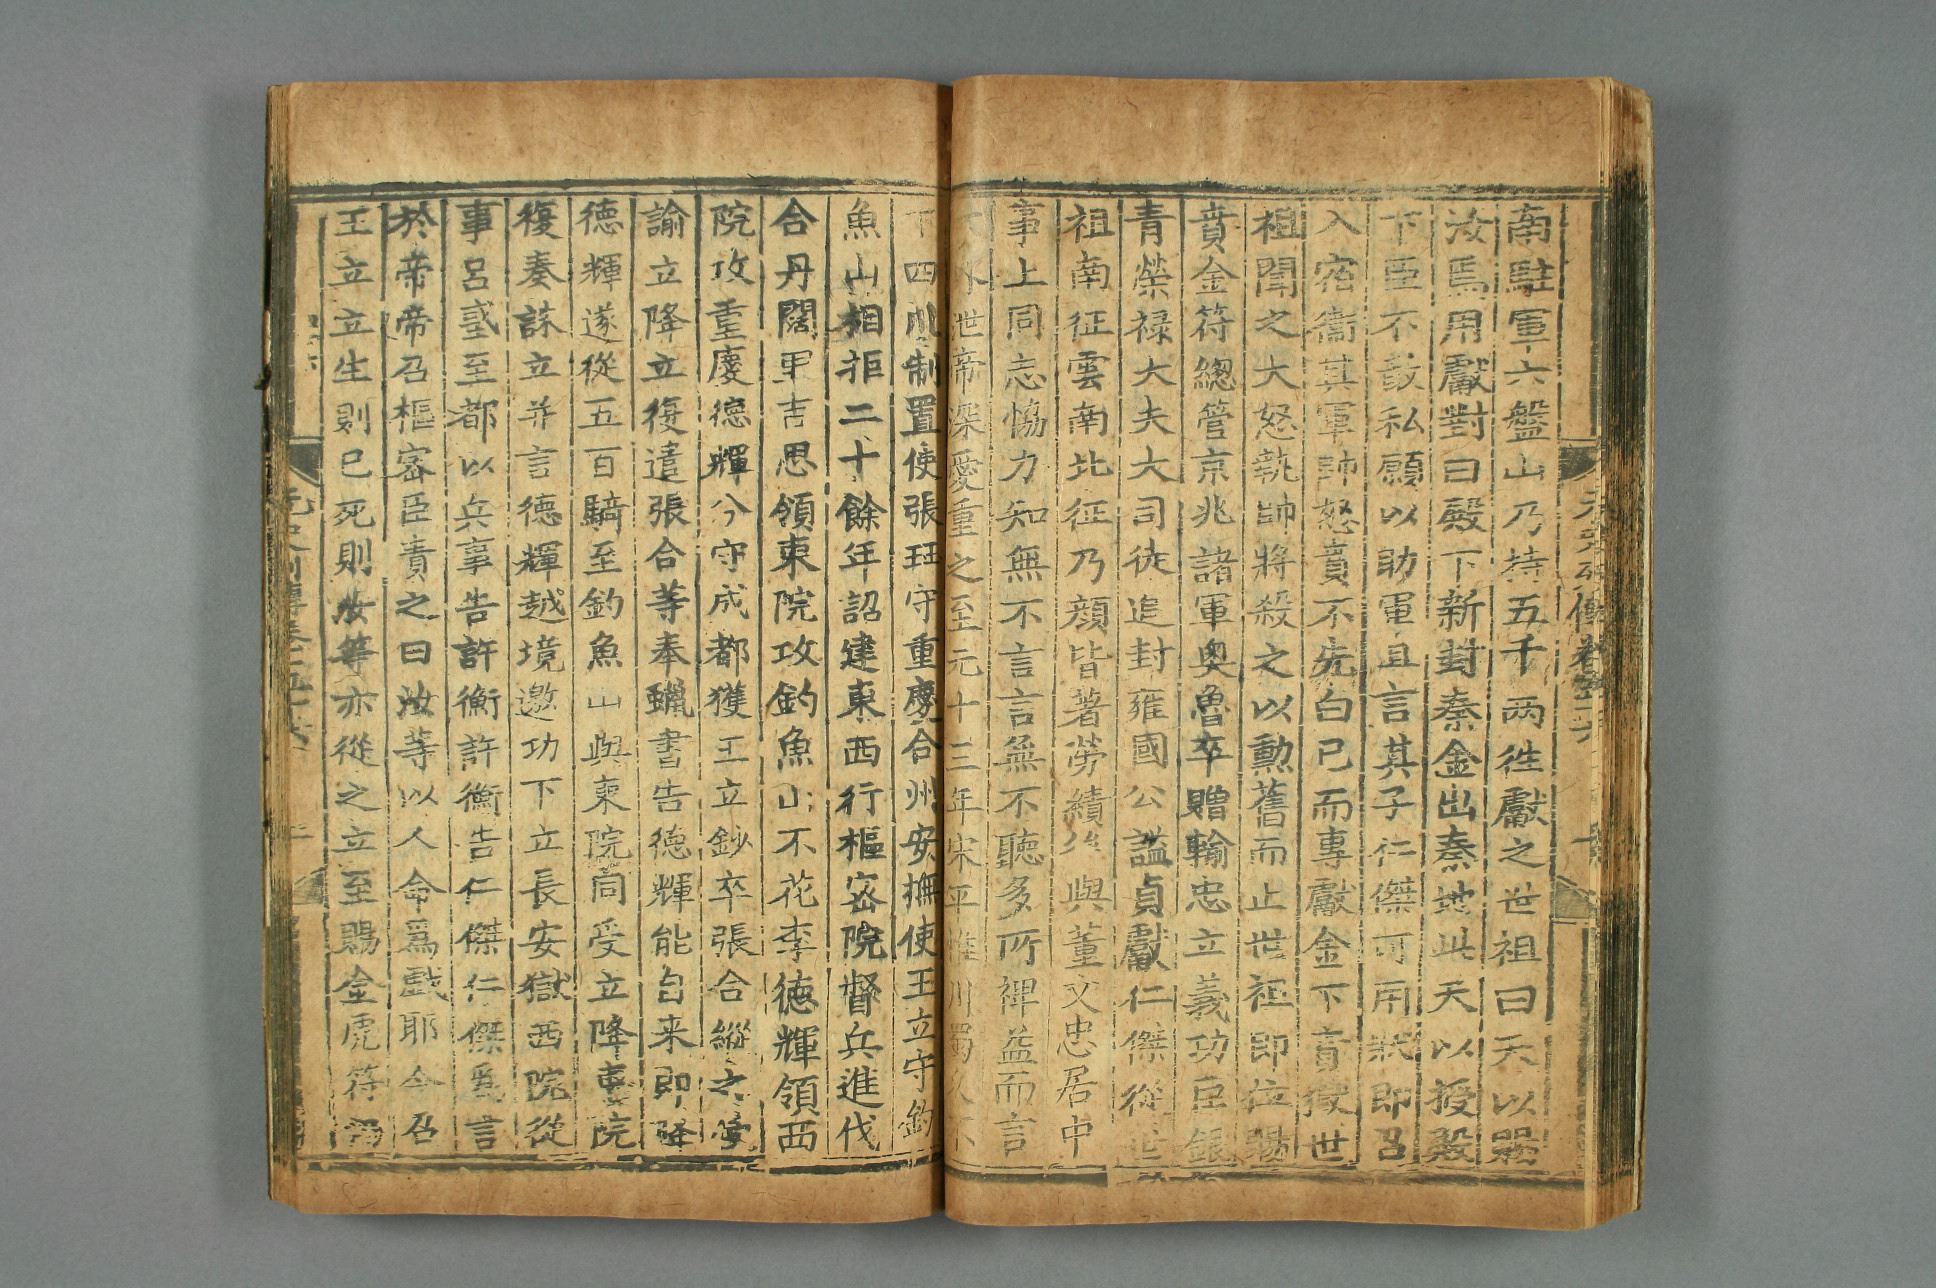 南駐軍六盤山乃持五千兩徃獻之世祖曰天以賜
汝焉用獻對曰殿下新封秦金出秦地此天以授殿
下臣不敢私願以助軍且言其子仁傑可用狀即召
入宿衞其軍帥怒賁不先白己而專獻金下賁獄世
祖聞之大怒執帥將殺之以勲舊而止世祖即位賜
賁金符緫管京兆諸軍奥魯卒贈輸忠立義功臣銀
青榮祿大夫大司徒追封雍國公謚貞獻仁傑從世
祖南征雲南北征乃顔皆著勞績後與董文忠居中
事上同志恊力知無不言言無不聽多所裨益而言
不外世帝深愛重之至元十三年宋平惟川蜀久不
下四川制置使張珏守重慶合州安撫使王立守釣
魚山相拒二十餘年詔建東西行樞宻院督兵進伐
合丹闊里吉思領東院攻釣魚山不花李德輝領西
院攻重慶德輝分守成都獲王立鈔卒張合縱之使
諭立降立復遣張合等奉蠟書告德輝能自来即降
德輝遂從五百騎至釣魚山與東院同受立降東院
復奏誅立并言德輝越境邀功下立長安獄西院從
事吕惑至都以兵事告許衡許衡告仁傑仁傑爲言
於帝帝召樞宻臣責之曰汝等以人命爲戲耶今召
王立立生則已死則汝等亦從之立至賜金虎符爲
元史列傳卷五十六